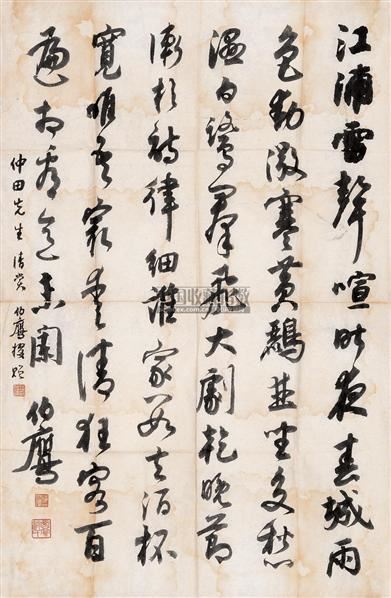 江浦雷聲喧昨夜春城雨
色動微寒黃鸝並坐交愁
濕白鷺羣飛大劇乾晚節
漸於詩律細誰家數去酒杯
寬唯吾最愛清狂客百
遍相看意未闌 伯鷹
仲田先生清賞 伯鷹